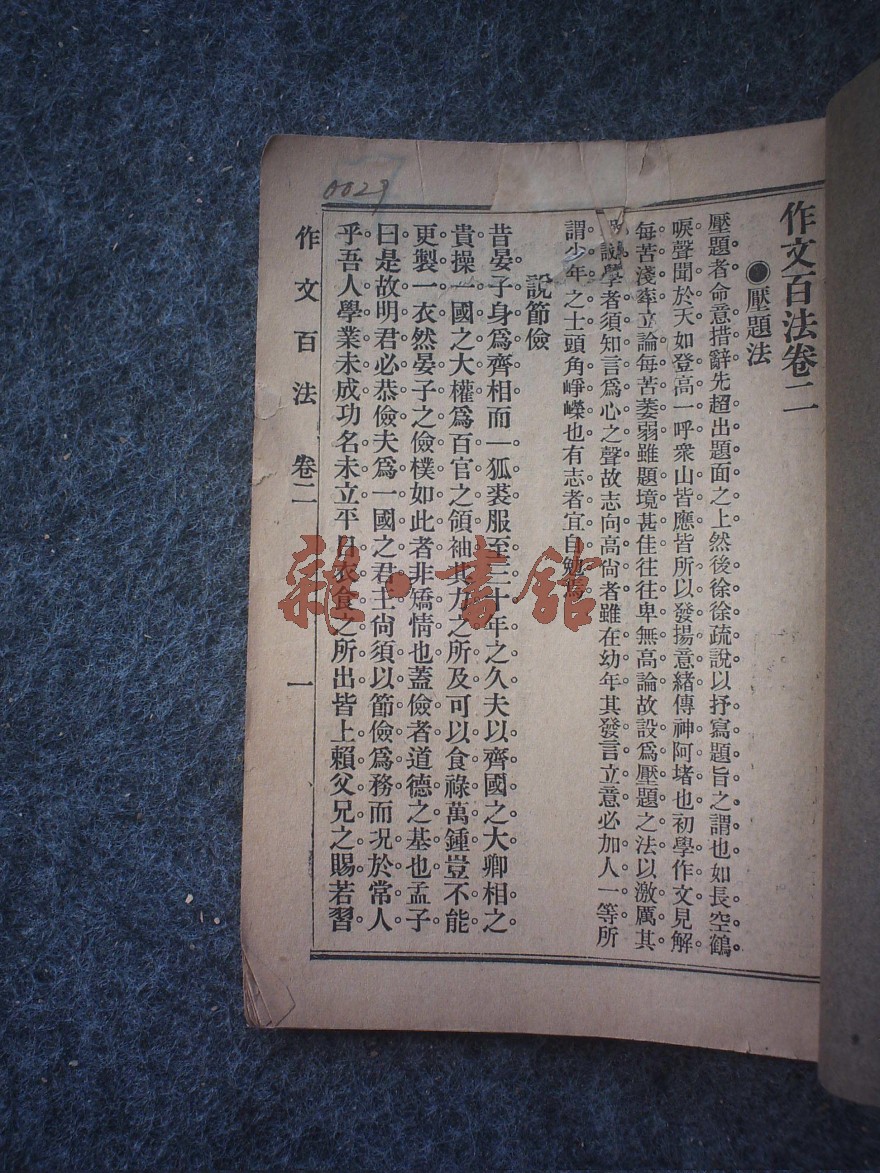 作文百法卷二
●壓題法
壓題者命意措辭先超出題面之上然後徐徐疏說以抒寫題旨之謂也如長空鶴
唳聲聞於天如登高一呼衆山皆應皆所以發揚意緒傳神阿堵也初學作文見解
每苦淺率立論每苦萎弱雖題境甚佳往往卑無高論故設爲壓題之法以激厲其
說學者須知言爲心之聲故志向高尙者雖在幼年其發言立意必加人一等所
謂少年之士頭角崢嶸也有志者宜自勉焉
說節儉
昔晏子身爲齊相而一狐裘服至三十年之久夫以齊國之大卿相之
貴操一國之大權爲百官之領袖其力之所及可以食祿萬鍾豈不能
更製一衣然晏子之儉樸如此者非矯情也蓋儉者道德之基也孟子
曰是故明君必恭儉夫爲一國之君主尙須以節儉爲務而況於常人
乎吾人學業未成功名未立平日衣食之所出皆上賴父兄之賜若習
作文百法 卷二 一
0029
雜·書館